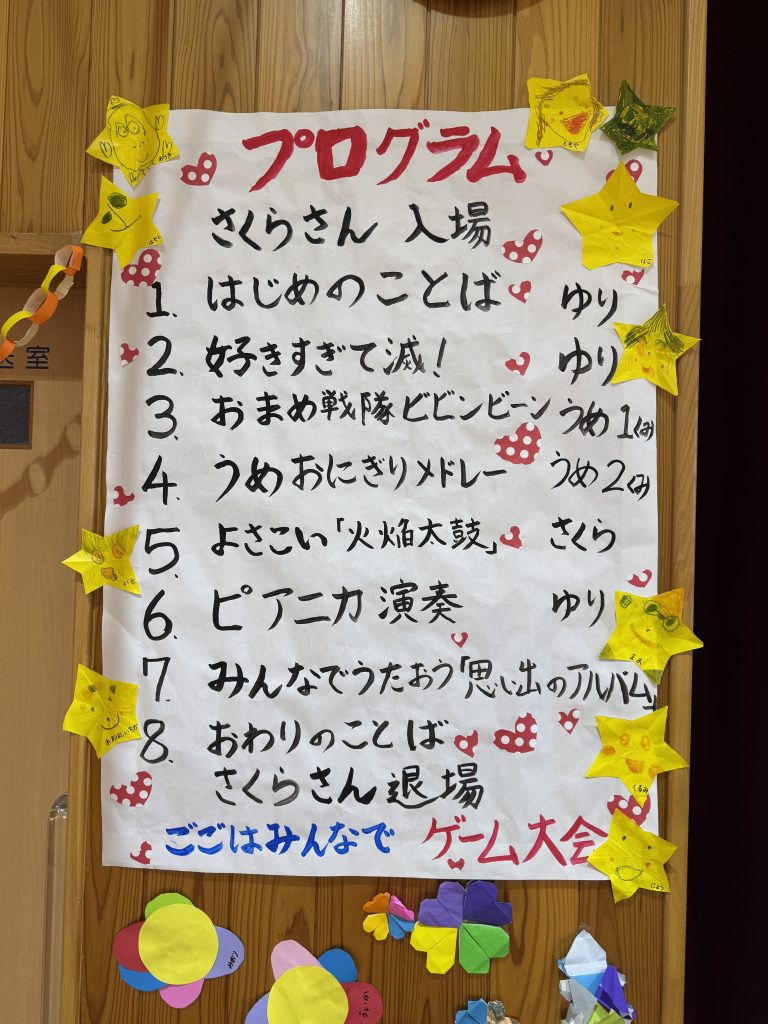 プログラム
さくらさん 入場
1. はじめのことば ゆり
2. 好きすぎて滅! ゆり
3. おまめ戦隊ビビンビーン うめ1くみ
4. うめおにぎりメドレー うめ2くみ
5. よさこい「火焔太鼓」 さくら
6. ピアニカ演奏 ゆり
7. みんなでうたおう「思い出のアルバム」
8. おわりのことば
さくらさん 退場
ごごはみんなで ゲーム大会
ともや
りこ
いと
まお
くるみ
じょう
室